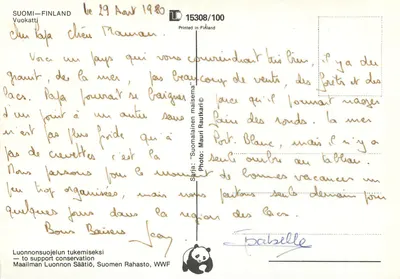 SUOMI—FINLAND
Vuokatti
le 29 Aout 1980
15308/100
Printed in Finland
Cher Papa Chère Maman.
Voici un pays qui vous conviendrait très bien, il y a du
granit, de la mer, pas beaucoup de vents, des forêts et des
lacs. Papa pourrait se baigner parce qu'il pourrait nager
d'un pont à un autre sans faire des ronds. La mer
n'est pas plus froide qu'à Port Blanc, mais il n'y a
pas de crevettes c'est la seule ombre au tableau.
Nous passons pour le moment de bonnes vacances un
peu trop organisées, mais nous partons seuls demain pour
quelques jours dans la région des lacs.
Bons Baisers Jean
Isabelle
Sarja: "Suomalainen maisema"
Photo: Mauri Rautkari©
Luonnonsuojelun tukemiseksi
— to support conservation
Maailman Luonnon Säätiö, Suomen Rahasto, WWF